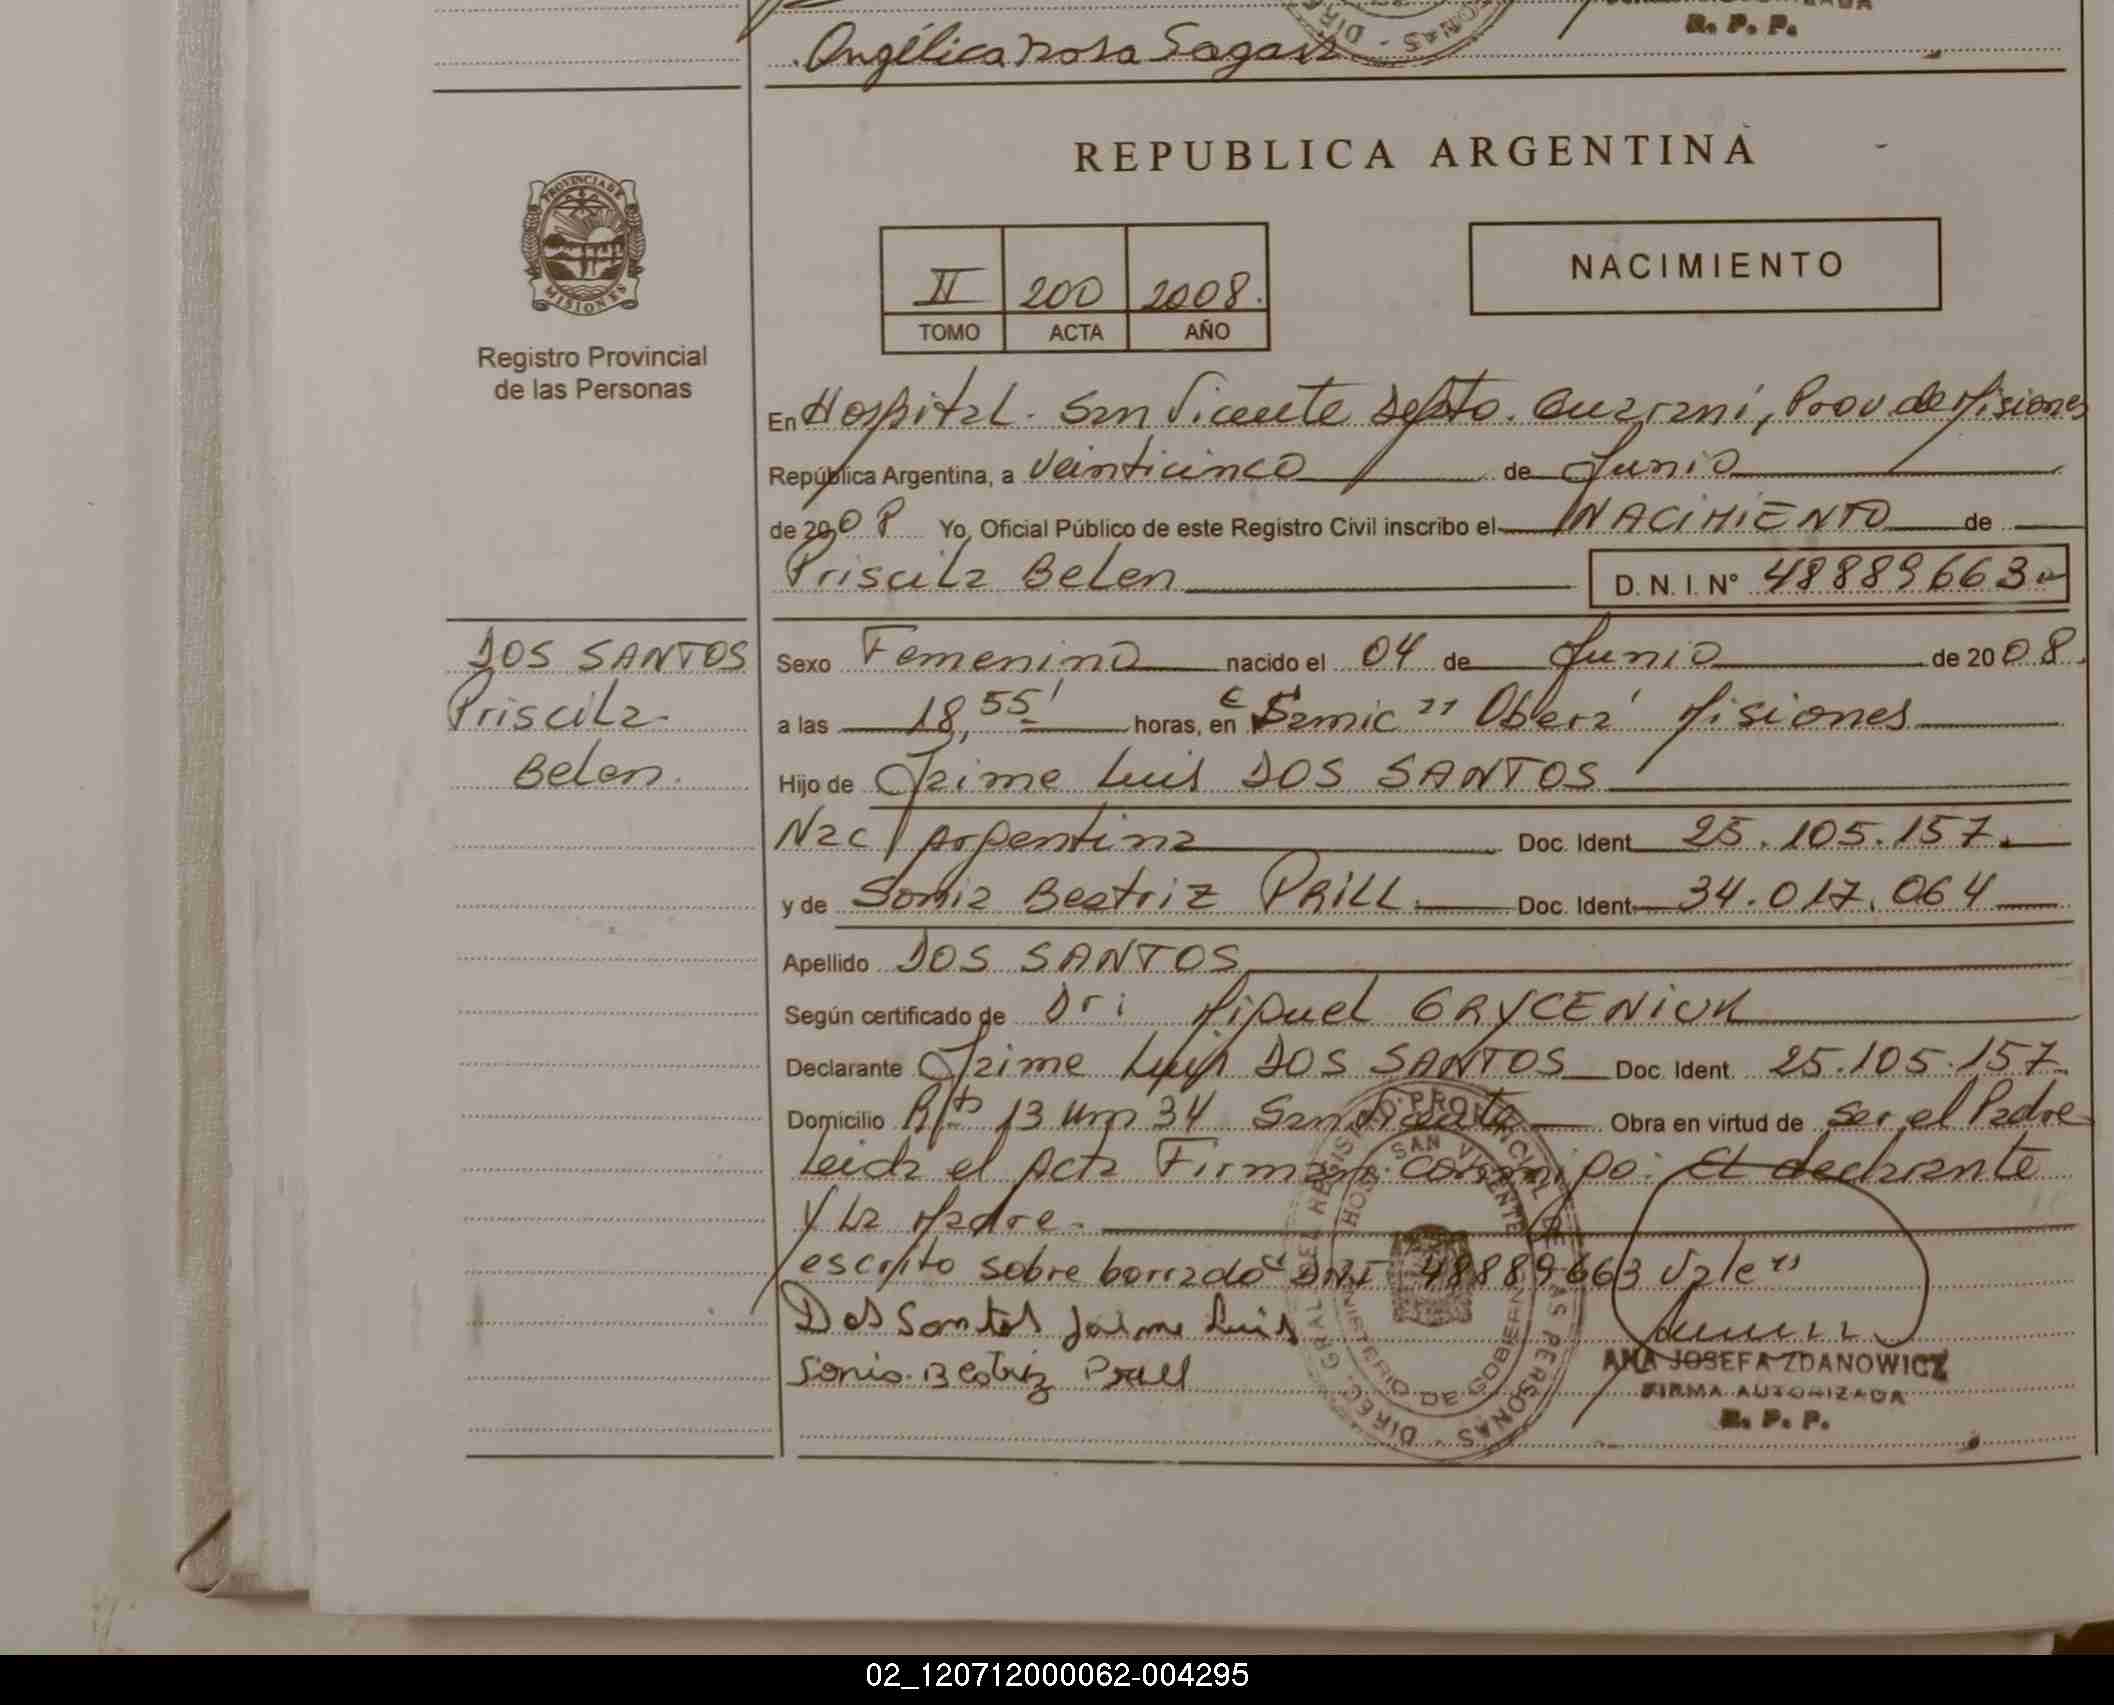 Angélica Rosa
R. P. P.
REPUBLICA ARGENTINA
PROVINCIA DE
MISIONES
Registro Provincial
de las Personas
II 200 2008.
TOMO ACTA AÑO
NACIMIENTO
En Hospital. San Vicente Depto. Guarani, Prov de Misiones
República Argentina, a veinticinco de Junio
de 2008 Yo, Oficial Público de este Registro Civil inscribo el NACIMIENTO de
Priscila Belen D. N. I. Nº 48889663
DOS SANTOS
Priscila
Belen.
Sexo Femenino nacido el 04 de Junio de 2008.
a las 18,55' horas, en "Samic" Oberá Misiones
Hijo de Jaime Luis DOS SANTOS
Nac/ Argentina Doc. Ident 25.105.157.
y de Sonia Beatriz PRILL. Doc. Ident 34.017.064
Apellido DOS SANTOS
Según certificado de Dr: Miguel GRYCENIUK
Declarante Jaime Luis DOS SANTOS Doc. Ident. 25.105.157.
Domicilio Rta 13 Km 34 San Vicente Obra en virtud de ser el Padre
Leida el Acta Firman conmigo: El declarante
Y La Madre.
escrito sobre borrado "DNI 48889663 Vale"
Dos Santos Jaime Luis
Sonia Beatriz Prill
DIREC. GRAL. DEL REGISTRO PROVINCIAL DE LAS PERSONAS
HOSP. SAN VICENTE
MINISTERIO DE GOBIERNO
ANA JOSEFA ZDANOWICZ
FIRMA AUTORIZADA
R. P. P.
02_120712000062-004295